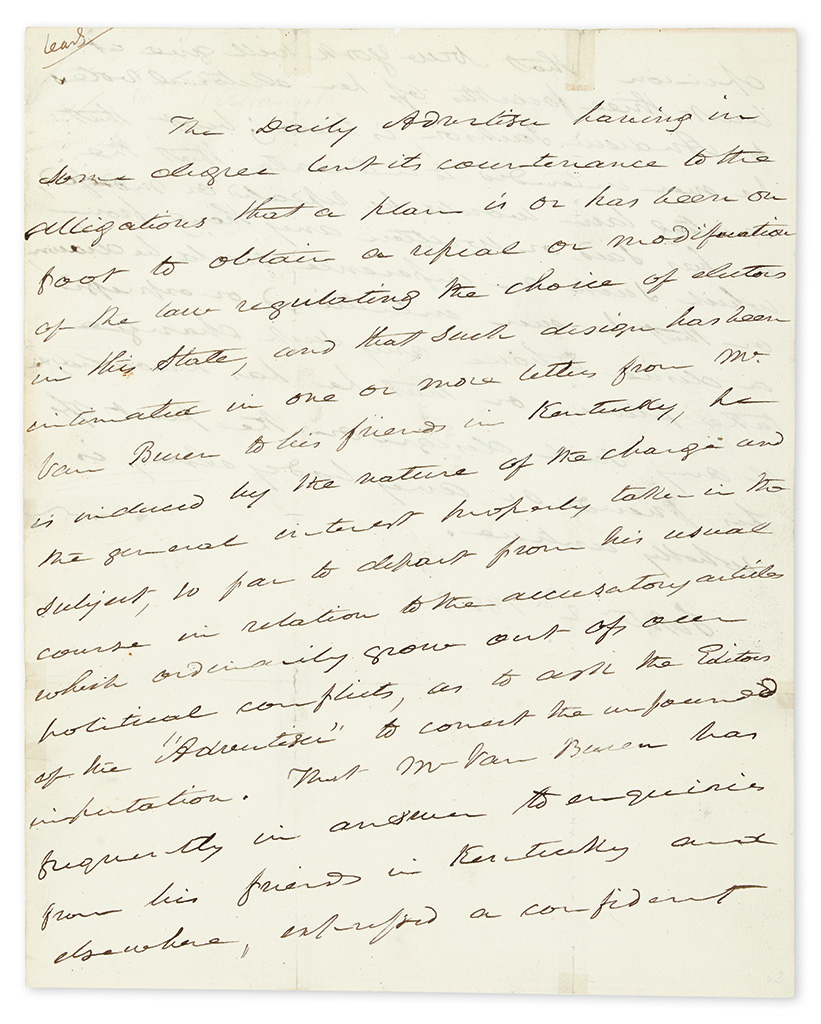 Leads
The Daily Advertiser having in
some degree lent its countenance to the
alligations that a plan is or has been on
foot to obtain a repeal or modification
of the law regulating the choice of electors
in this State, and that such design has been
intimated in one or more letters from Mr
Van Buren to his friends in Kentucky, he
is induced by the nature of the charge and
the general interest properly taken in the
subject, so far to depart from his usual
course in relation to the accusatory articles
which ordinarily grow out of our
political conflicts, as to ask the Editors
of the "Advertiser" to correct the unfounded
imputation. That Mr Van Buren has
frequently in answer to enquiries
from his friends in Kentucky and
elsewhere, expressed a confident